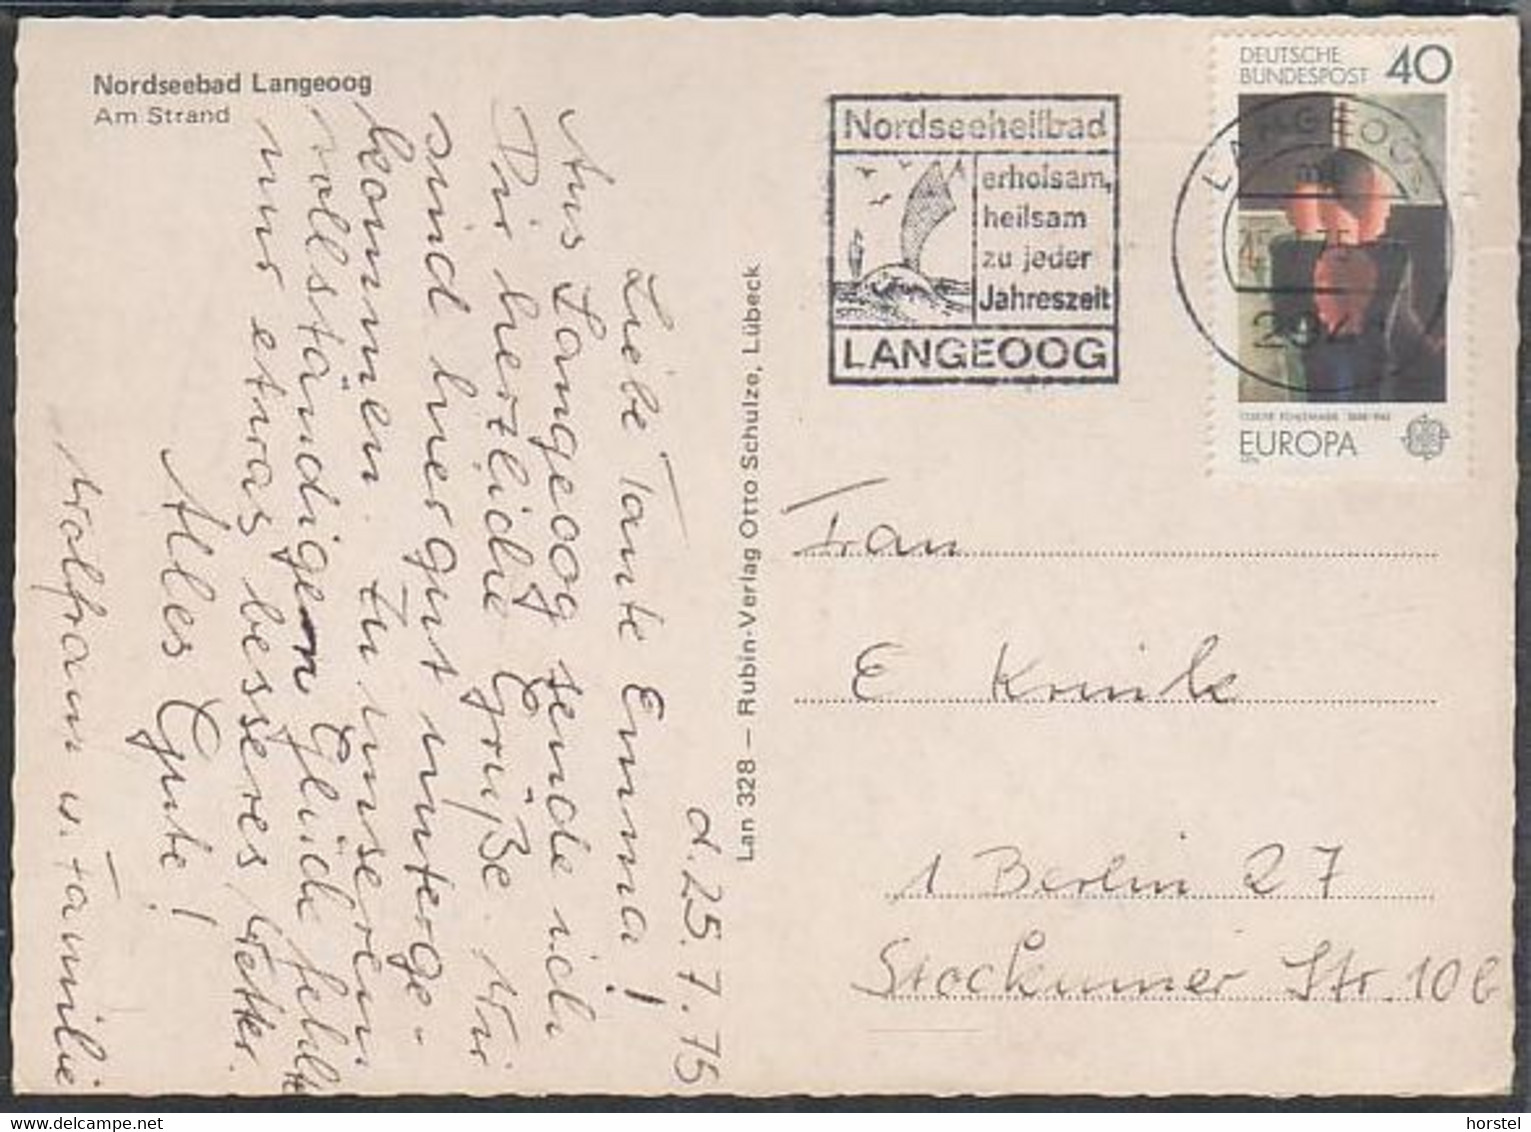 Nordseebad Langeoog
Am Strand
d. 25.7.75
Liebe Tante Emma!
Aus Langeoog sende ich
Dir herzliche Grüße. Wir
sind hier gut unterge-
kommen. Zu unserem
vollständigen Glück fehlt
nur etwas besseres Wetter.
Alles Gute!
Wolfram u. Familie
Lan 328 – Rubin-Verlag Otto Schulze, Lübeck
Nordseeheilbad
erholsam,
heilsam
zu jeder
Jahreszeit
LANGEOOG
DEUTSCHE
BUNDESPOST 40
LANGEOOG
EUROPA
Frau
E Krink
1 Berlin 27
Stockumer Str. 10 b
horstel